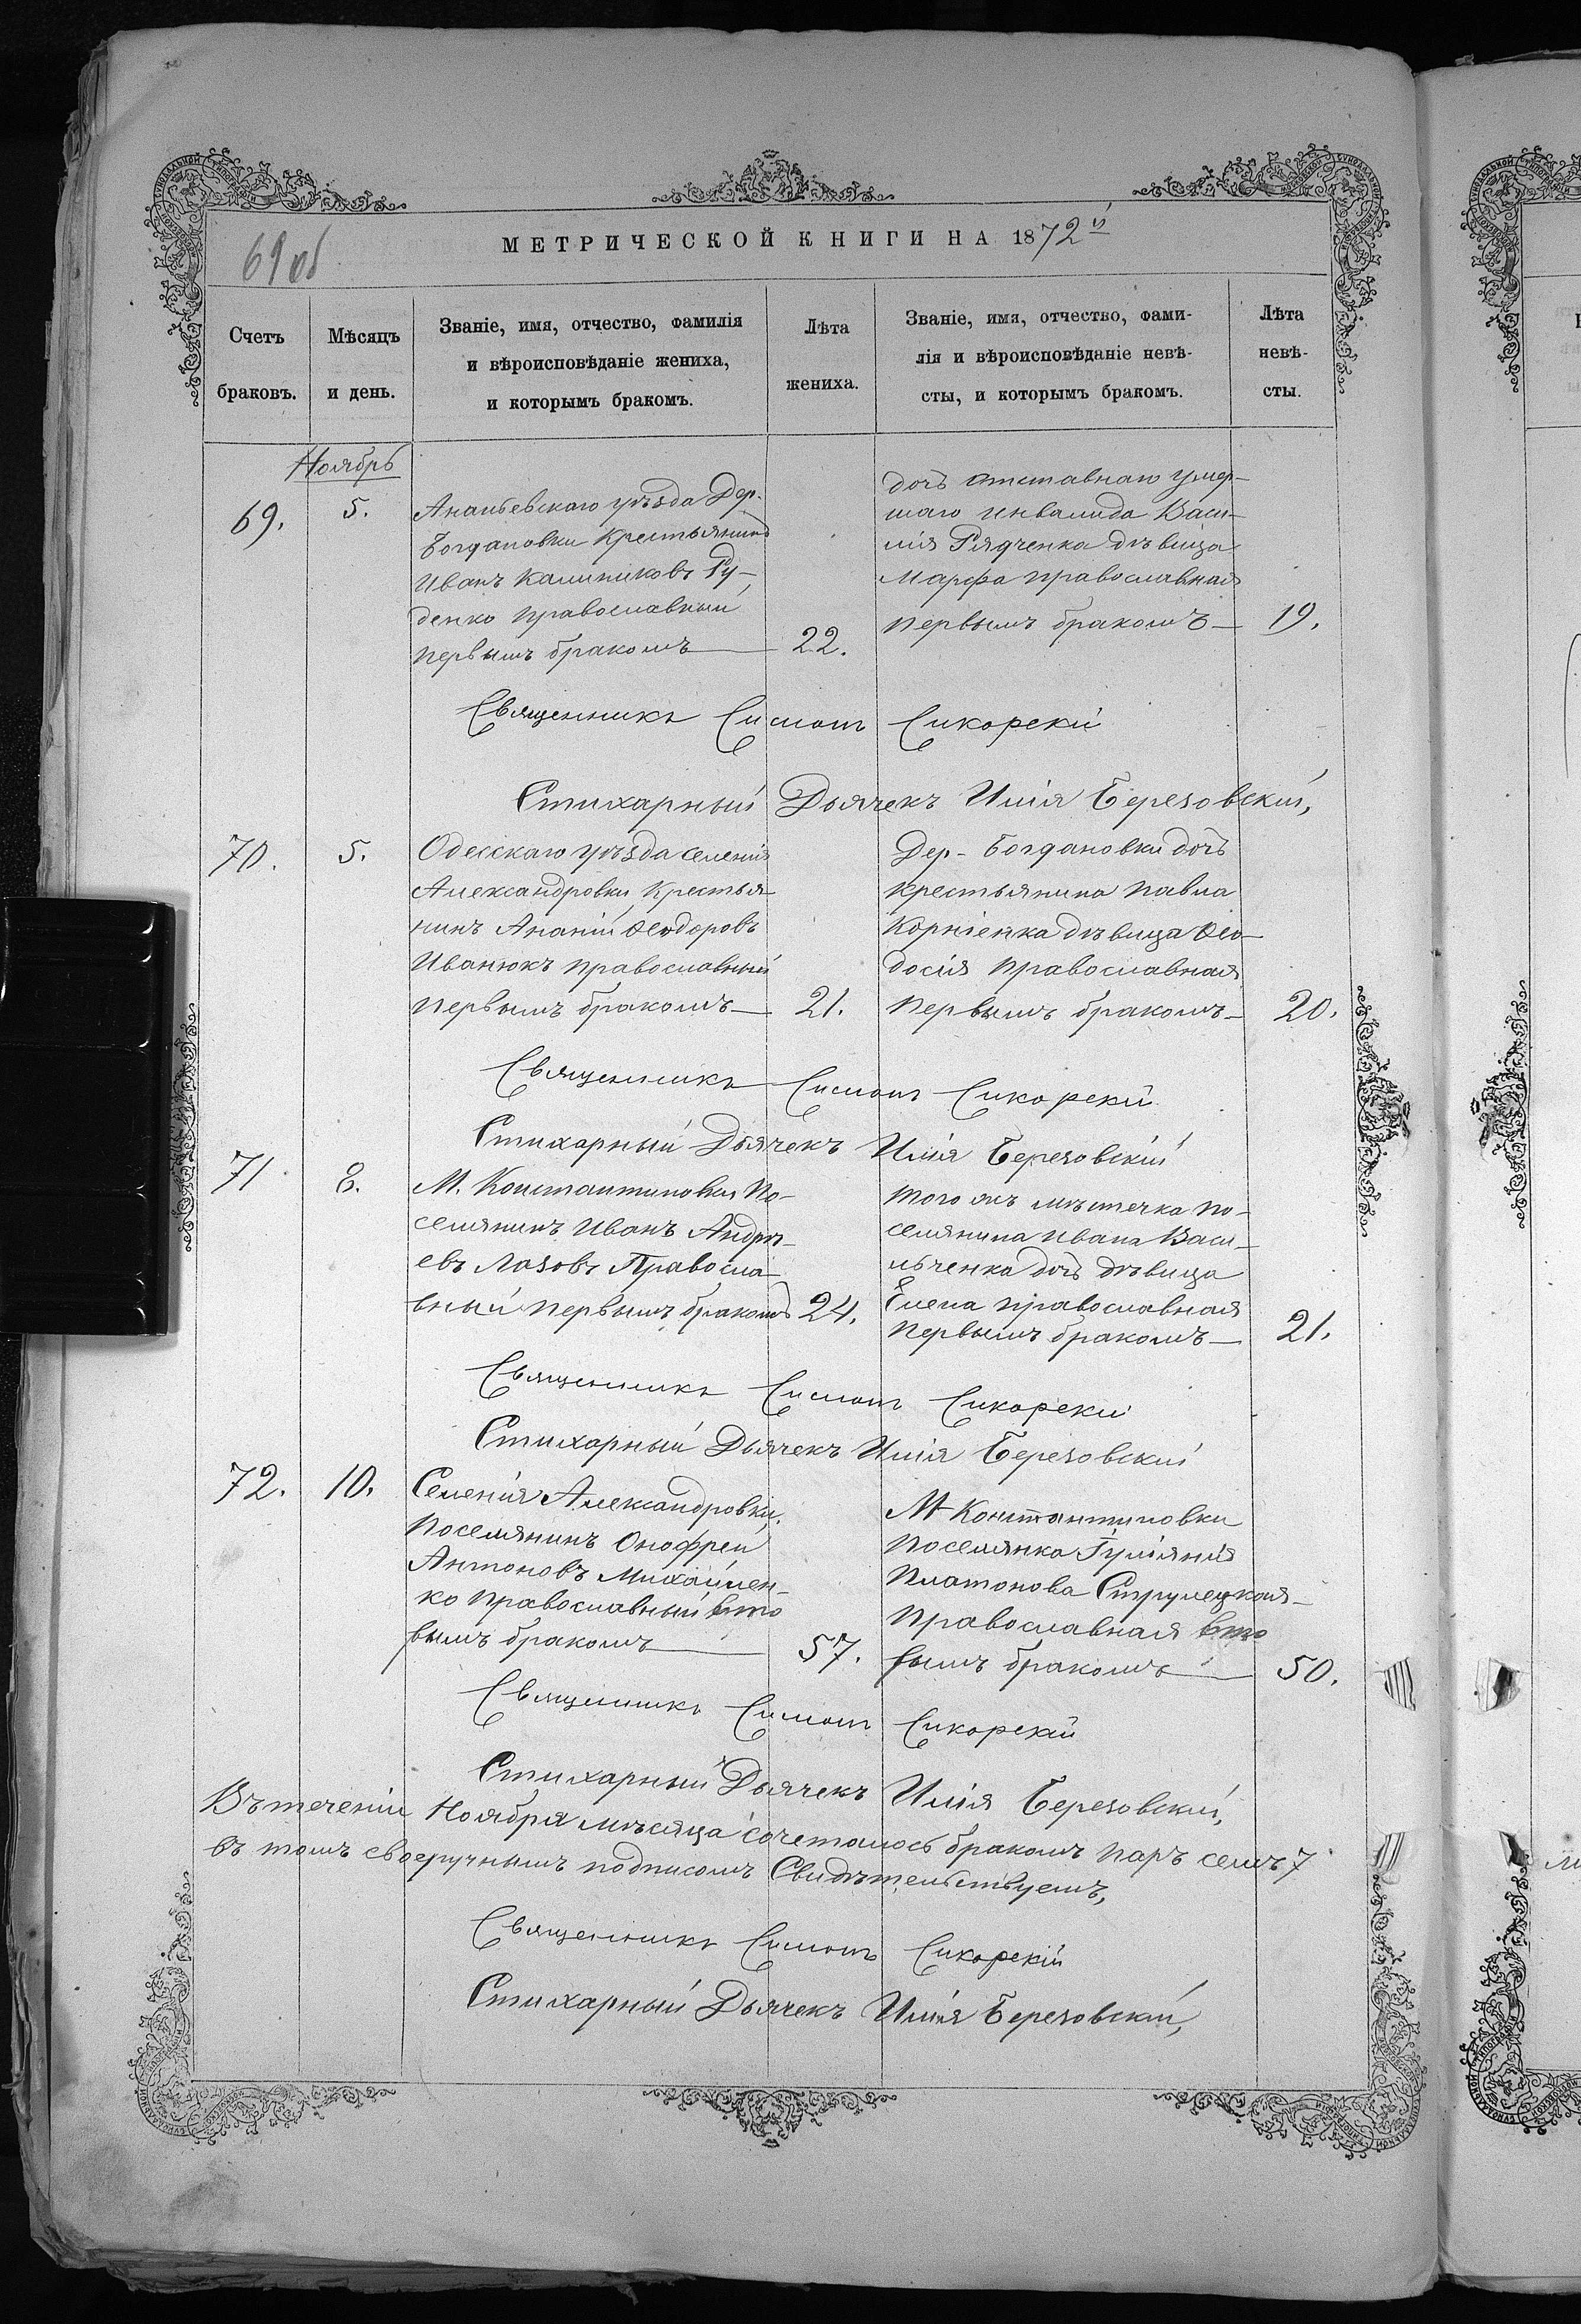 МЕТРИЧЕСКОЙ КНИГИ НА 1872й
69 об
Счетъ браковъ.
Мѣсяцъ и день.
Званіе, имя, отчество, фамилія
и вѣроисповѣданіе жениха,
и которымъ бракомъ.
Лѣта жениха.
Званіе, имя, отчество, фами-
лія и вѣроисповѣданіе невѣ-
сты, и которымъ бракомъ.
Лѣта невѣ-
сты.
Ноябрь
69.
5.
Ананьевскаго уѣзда Дер.
Богдановки Крестьянинъ
Иванъ Калиниковъ Ру-
денко православный
первымъ бракомъ
22.
дочь отставнаго умер-
шаго инвалида Васи-
лія Рядченка дѣвица
Марфа православная
первымъ бракомъ
19.
Священникъ Симонъ Сикорскій
Стихарный Дьячекъ Илія Березовскій,
70.
5.
Одесскаго уѣзда селенія
Александровки Крестья-
нинъ Ананій Ѳеодоровъ
Иванюкъ православный
первымъ бракомъ
21.
Дер- Богдановки дочь
крестьянина Павла
Корніенка дѣвица Ѳео-
досія православная
первымъ бракомъ
20.
Священникъ Симонъ Сикорскій
Стихарный Дьячекъ Илія Березовскій
71
8.
М. Константиновки По-
селянинъ Иванъ Андрѣ-
евъ Лазовъ Правосла-
вный первымъ бракомъ
24.
того жъ мѣстечка по-
селянина Ивана Васи-
льченка дочь дѣвица
Елена православная
первымъ бракомъ
21.
Священникъ Симонъ Сикорскій
Стихарный Дьячекъ Илія Березовскій
72.
10.
Селенія Александровки
Поселянинъ Онофрей
Антоновъ Михайлен-
ко православный вто
рымъ бракомъ
57.
М Константиновки
Поселянка Іуліянія
Платонова Струлецкая
Православная вто
рымъ бракомъ
50.
Священникъ Симонъ Сикорскій
Стихарный Дьячекъ Илія Березовскій,
Въ теченіи Ноября мѣсяца сочеталось бракомъ паръ семь 7
въ томъ своеручнымъ подписомъ Свидѣтельствуемъ,
Священникъ Симонъ Сикорскій
Стихарный Дьячекъ Илія Березовскій,